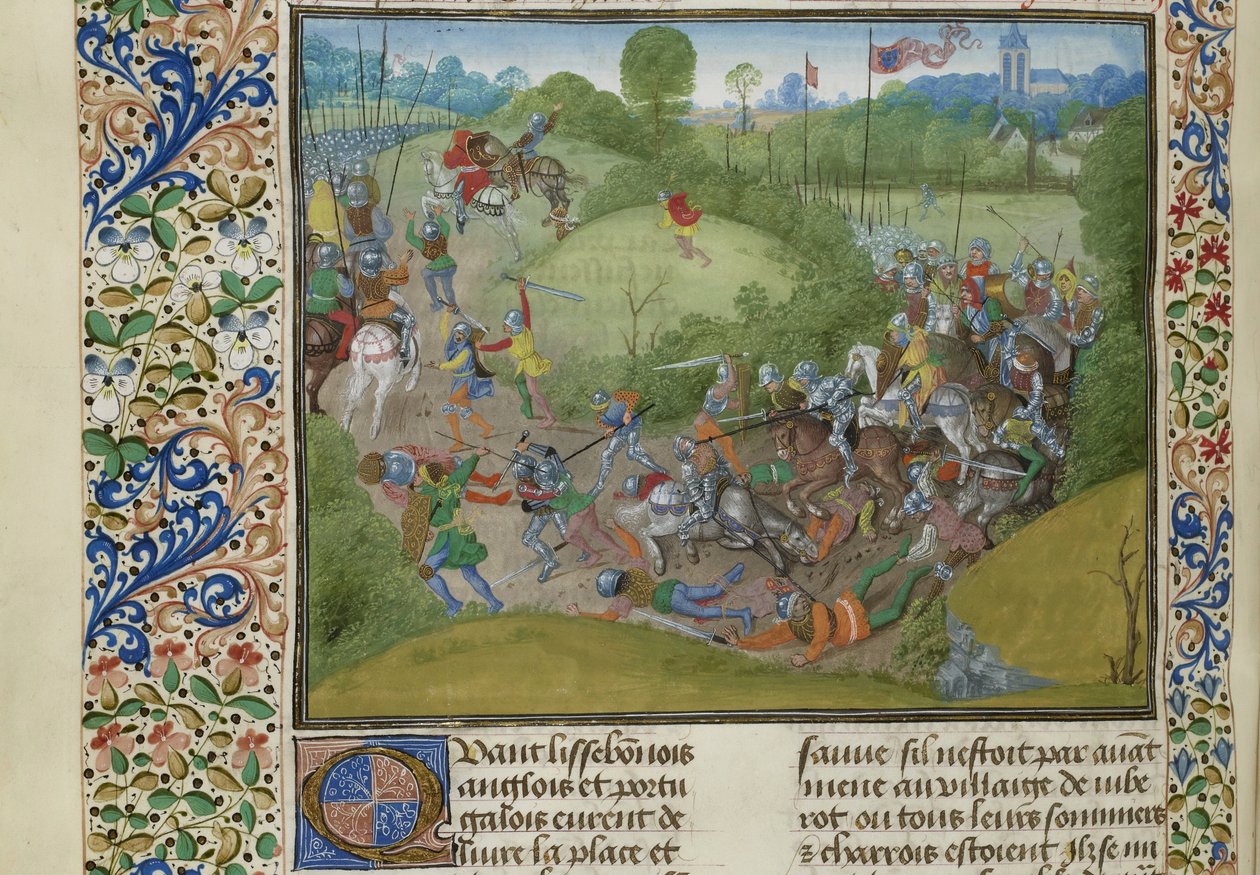 Quant lissebōnois
anglois et portu
galois eurent de
liure la place et
sauue sil nestoit par auāt
mene au villaige de iube
rot ou tous leurs sommiers
⁊ charrois estoient Ilz se mi